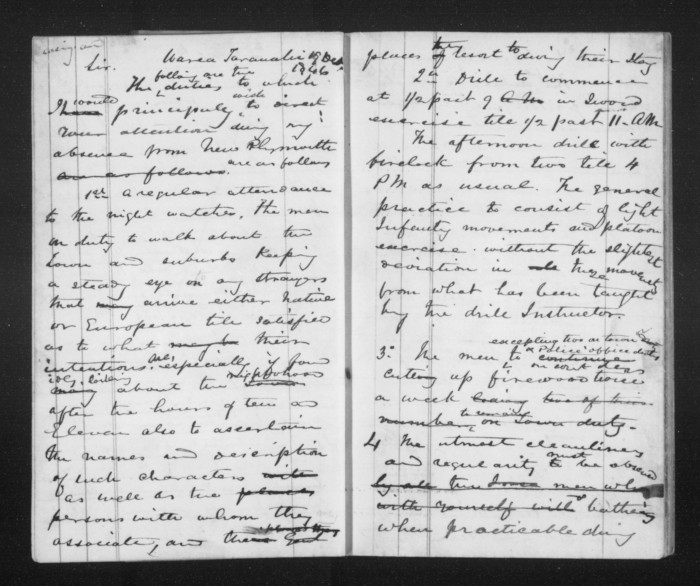 Sir. Warea Taranaki 19 Dec
1866
The following are the duties to which
I would wish
principally to direct
your attention during my
absence from New Plymouth
are as follows
are as follows.
1st A regular attendance
to the night watches, The men
on duty to walk about the
town and suburbs keeping
a steady eye on any strangers
that may arrive either Native
or European till satisfied
as to what may be their
intentions, especially if found
about the
after the hours of ten or
Eleven also to ascertain
the names and description
of such characters with
as well as the places
persons with whom they
associate, and
places of resort to during their stay
2nd Drill to commence
at 1/2 past 9 A.M. in Sword
exercise till 1/2 past 11 A.M.
The afternoon drill with
firelock from two till 4
PM as usual. The general
practice to consist of light
Infantry movements and platoon
exercise without the slightest
deviation in these movements
from what has been taught
by the drill Instructor.
excepting two on town duty
or Police office duties
3. The men to continue
on court days
cutting up firewood twice
a week
number, on Town duty.
4 The utmost cleanliness
and regularity must to be observed
by all the men who
with yourself with bathing
when practicable during